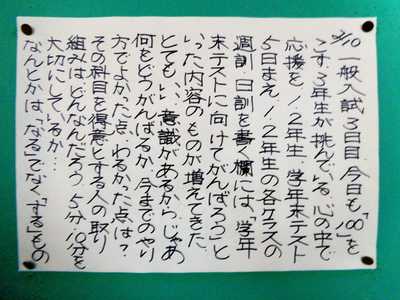 2/10 一般入試3日目 今日も「100」を
こす、3年生が挑んでいる。心の中で
応援を/1、2年生、学年末テスト
5日まえ/1、2年生の各クラスの
週訓・日訓を書く欄には、「学年
末テストに向けてがんばろう」と
いった内容のものが増えてきた
とてもいい、意識があるから、じゃあ
何をどうがんばるか、今までのやり
方でよかった点、わるかった点は?
その科目を得意とする人の取り
組みはどんなんだろう、5分、10分を
大切にしているか…
なんとかは「なる」でなく「する」もの